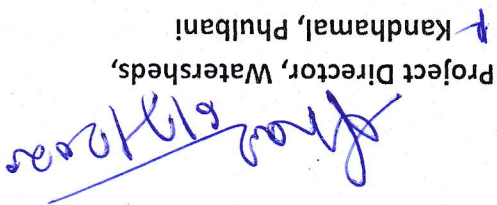 Project Director, Watersheds,
Kandhamal, Phulbani